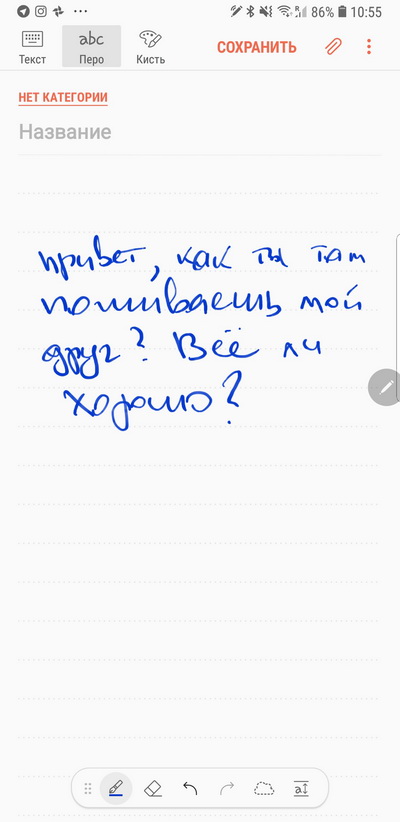 86% 10:55
Текст
abc
Перо
Кисть
СОХРАНИТЬ
НЕТ КАТЕГОРИИ
Название
привет, как ты там
поживаешь мой
друг? Всё ли
хорошо?